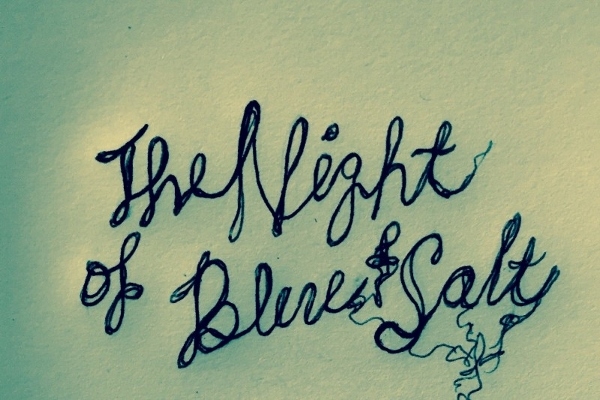 The Night
of Blue & Salt